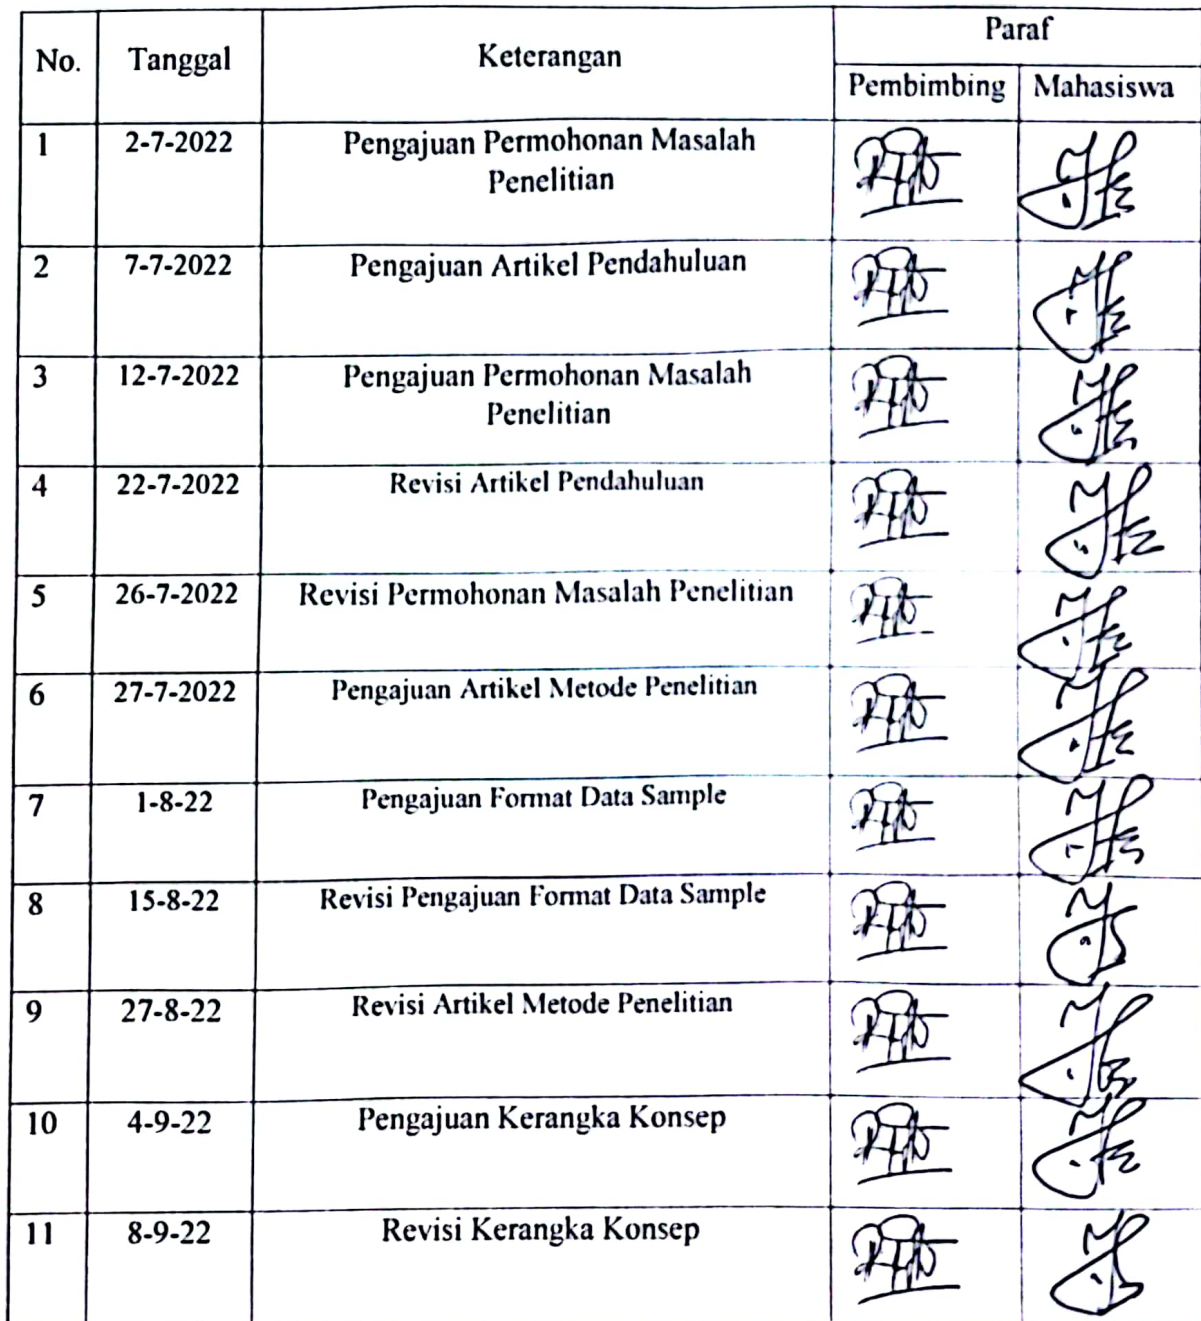 No. Tanggal Keterangan Paraf
Pembimbing Mahasiswa
1 2-7-2022 Pengajuan Permohonan Masalah
Penelitian
2 7-7-2022 Pengajuan Artikel Pendahuluan
3 12-7-2022 Pengajuan Permohonan Masalah
Penelitian
4 22-7-2022 Revisi Artikel Pendahuluan
5 26-7-2022 Revisi Permohonan Masalah Penelitian
6 27-7-2022 Pengajuan Artikel Metode Penelitian
7 1-8-22 Pengajuan Format Data Sample
8 15-8-22 Revisi Pengajuan Format Data Sample
9 27-8-22 Revisi Artikel Metode Penelitian
10 4-9-22 Pengajuan Kerangka Konsep
11 8-9-22 Revisi Kerangka Konsep